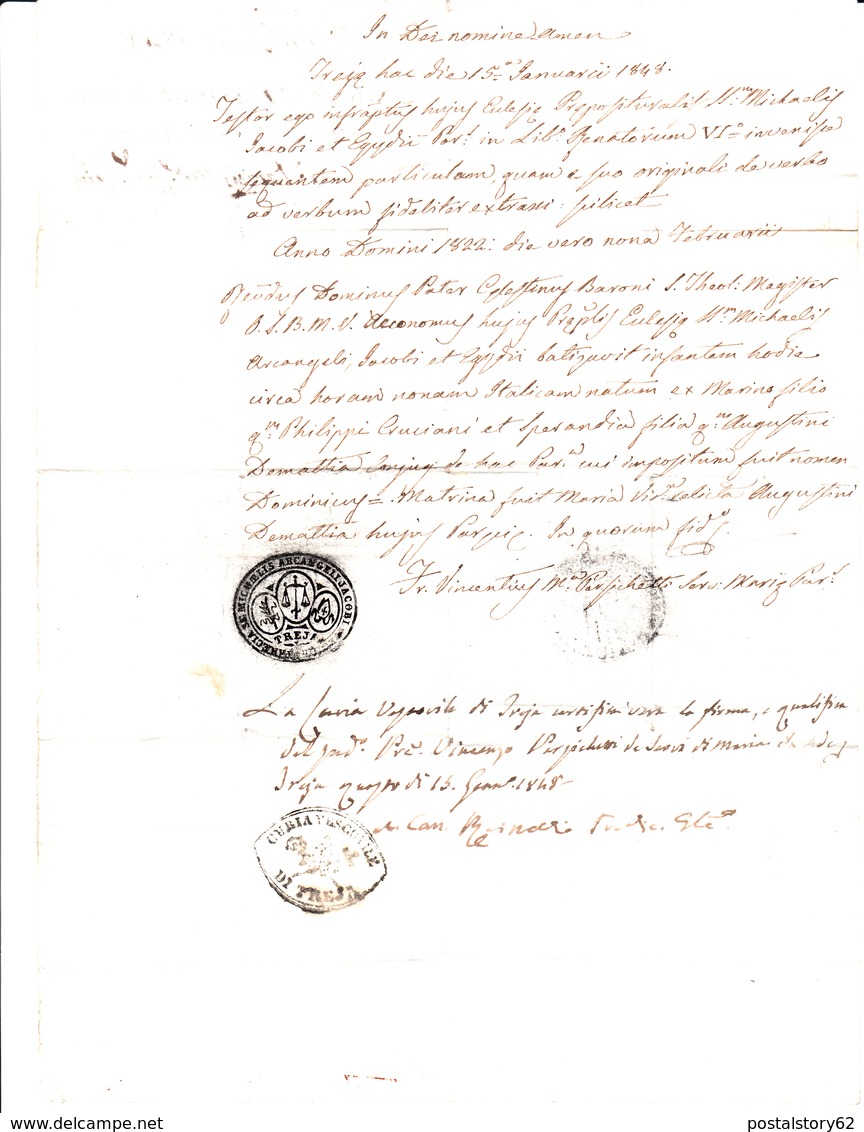 In Dei nomine Amen
Treję hac die 15.ª Januarii 1848.
Testor ego infraptus hujus Eclesię Preposituralis SS.m Michaelis
Jacobi et Egydii Par.s in Lib.o Renatorum VI.o invenisse
sequentem particulam, quam e suo originali de verbo
ad verbum fideliter extraxi: scilicet
Anno Domini 1822: die vero nona Februarii
Rẽvdus Dominus Pater Celestinus Baroni S. Theol: Magister
O. S. B. M. V. Aeconomus hujus Pręplis Eclesię SS.m Michaelis
Arcangeli, Jacobi et Egydii batizavit infantem hodie
circa horam nonam Italicam natum ex Marino filio
q.m Philippi Cruciani et Sperandia filia q.m Augustini
Demattia conjug. de hac Par.a cui impositum fuit nomen
Dominicus = Matrina fuit Maria Vid. relicta Augustini
Demattia hujus Paręię. In quorum fid.
Fr. Vincentius M.a Persichetti Serv: Marię Par.s
PARECIA SS. MICHAELIS ARCANGELI JACOBI
TREJA
La Curia Vescovile di Treja certifica vera la firma, e qualifica
del pred.o Pre. Vincenzo Persichetti de Servi di Maria
Treja questo di 15. Genn.o 1848
CURIA VESCOVILE
DI TREJA
postalstory62
www.delcampe.net